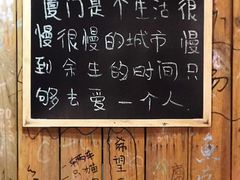 厦门是个生活很
慢很慢的城市 慢
到余生的时间只
够去爱一个人
希望